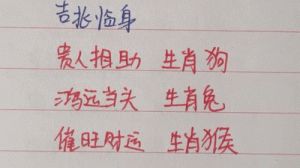 吉兆临身
贵人相助 生肖狗
鸿运当头 生肖兔
催旺财运 生肖猴